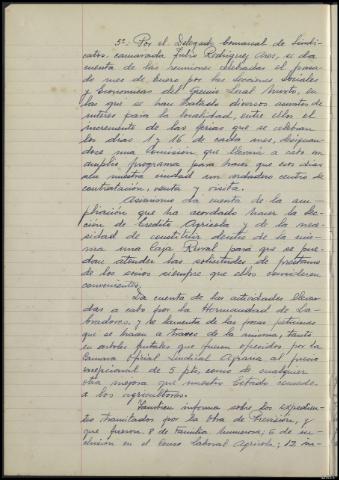 5º.- Por el Delegado Comarcal de Sindi-
catos, camarada Julio Rodriguez Ares, se da
cuenta de las reuniones celebradas el pasa-
do mes de Enero por las Secciones Sociales
y Económicas del Gremio Local Mixto, en
las que se han tratado diversos asuntos de
interes para la localidad, entre ellos el
incremento de las ferias que se celebran
los dias 1 y 16 de cada mes, designan-
dose una Comisión que llevará a cabo un
amplio programa para hacer que esos dias
sea nuestra ciudad un verdadero centro de
contratación, venta y visita.
Asimismo da cuenta de la am-
pliación que ha acordado hacer la Sec-
ción de Credito Agricola y de la nece-
sidad de constituir dentro de la mis-
ma una Caja Rural para que se pue-
dan atender las solicitudes de prestamo
de los socios siempre que ellos consideren
convenientes.
Da cuenta de las actividades lleva-
das a cabo por la Hermandad de La-
bradores, y se lamenta de las pocas peticiones
que se hacen a traves de la misma, tanto
en arboles frutales que fueron ofrecidos por la
Camara Oficial Sindical Agraria al precio
excepcional de 5 pts, como de cualquier
otra mejora que nuestro Estado concede
a los agricultores.
Tambien informa sobre los expedien-
tes tramitados por la Obra de Previsión, y
que fueron 8 de Familia Numerosa; 6 de in-
clusión en el Censo Laboral Agricola; 12 in-